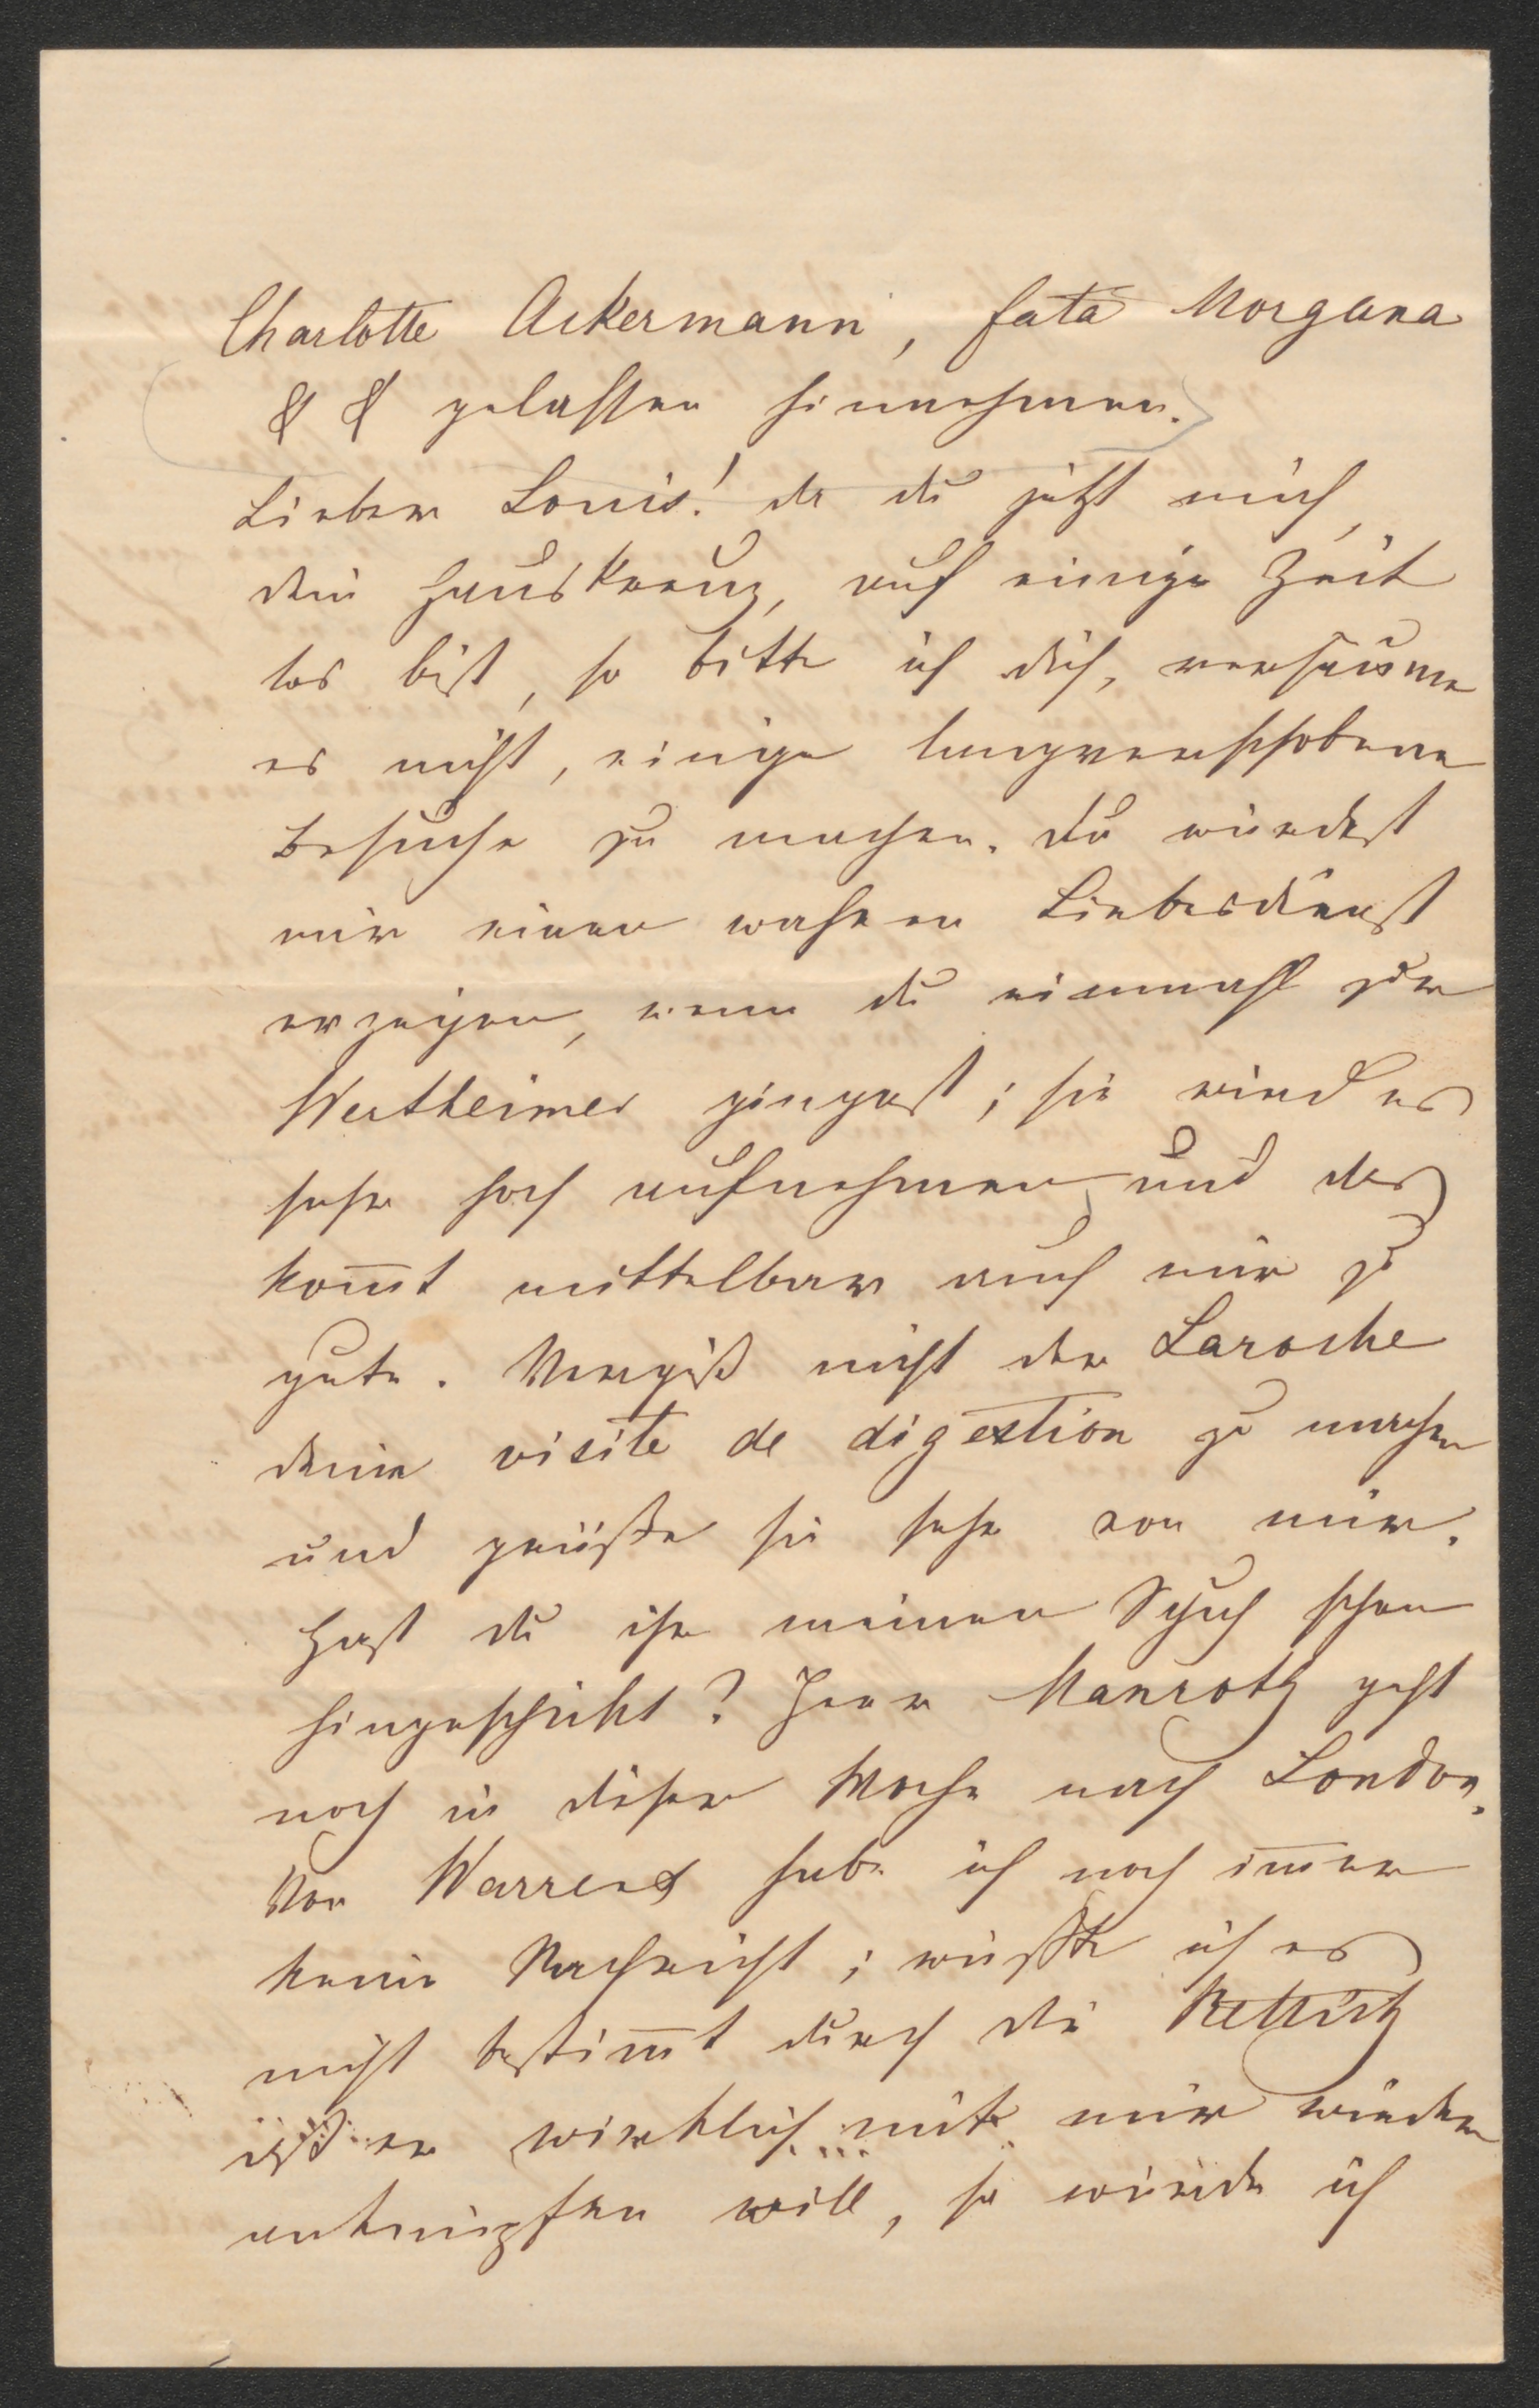 Charlotte Ackermann, Fata Morgana
& & gelassen hinnehmen.
Lieber Louis! da du jetzt mich,
dein Hauskreuz, auf einige Zeit
los bist, so bitte ich dich, versäume
es nicht, einige langverschobene
Besuche zu machen. Du würdest
mir einen wahren Liebesdienst
erzeigen, wenn du einmahl zur
Wertheimer gingest; sie wird es
sehr hoch aufnehmen und das
kom̅t mittelbar auch mir zu
gute. Vergiß nicht der Laroche
deine visite de digestion zu machen
und grüße sie sehr von mir.
Hast du ihr meinen Schuch schon
hingeschickt? Herr Manroth geht
noch in dieser Woche nach London.
Von Warrens habe ich noch im̅er
keine Nachricht; wüßte ich es
nicht bestim̅t durch die Rettich
daß er wirklich mit mir wieder
anknüpfen will, so würde ich